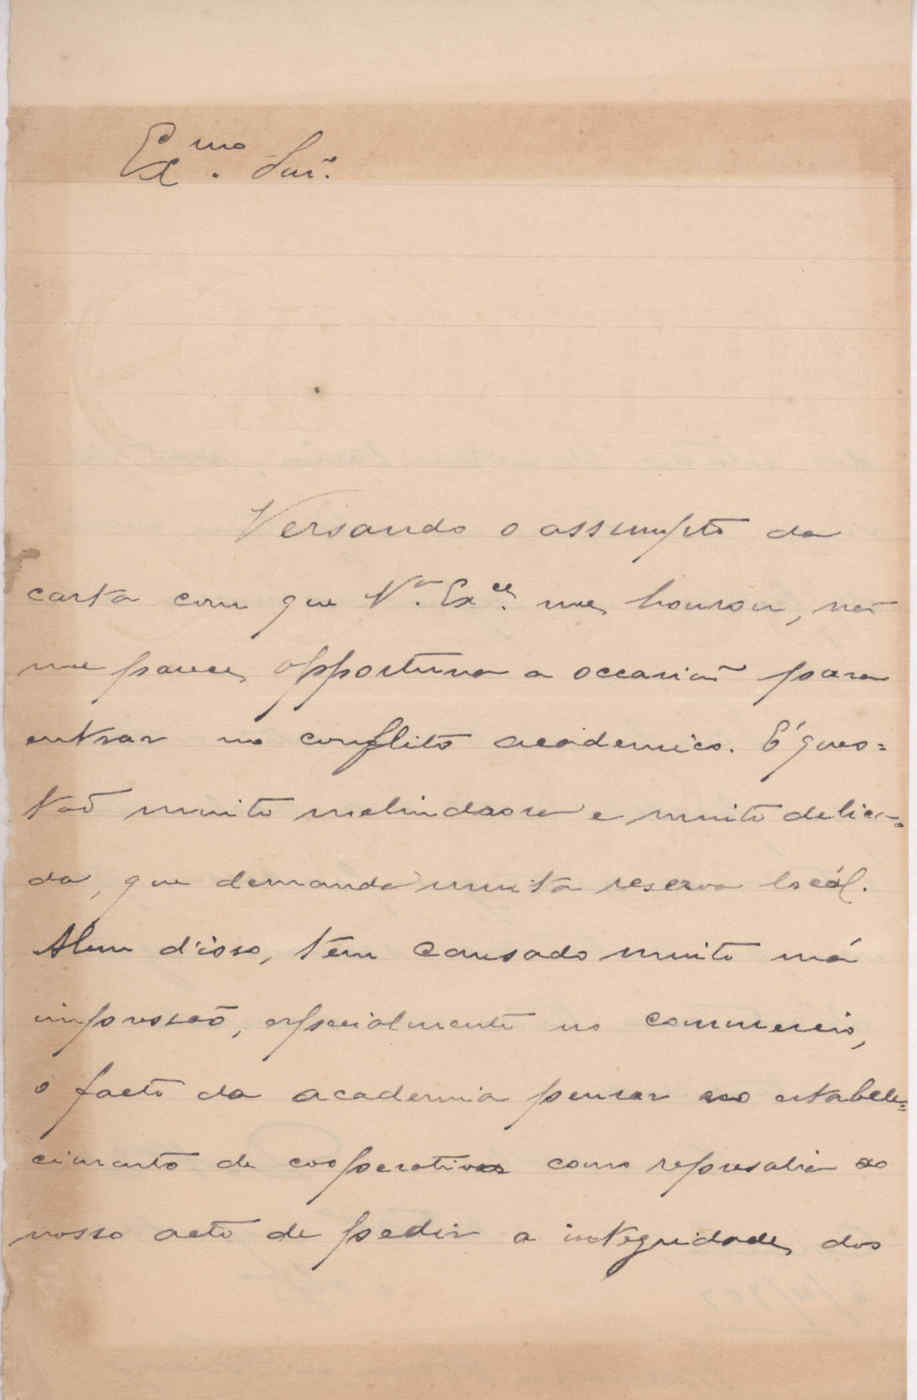 Ex.mo Snr.
Versando o assumpto da
carta com que V.a Ex.cia me honrou, não
me parece opportuna a occasião para
entrar no conflito academico. É ques=
tão muito melindrosa e muito delica-
da, que demanda muita reserva local.
Alem d'isso, tem causado muito má
impressão, especialmente no commercio,
o facto da academia pensar no estabele=
cimento de cooperativas como represalia ao
nosso acto de pedir a integridade dos